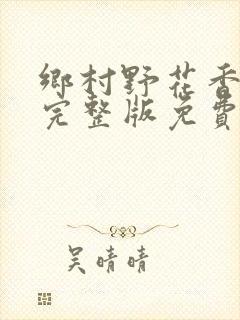 鄉村野花香
完整版免費
吳晴晴